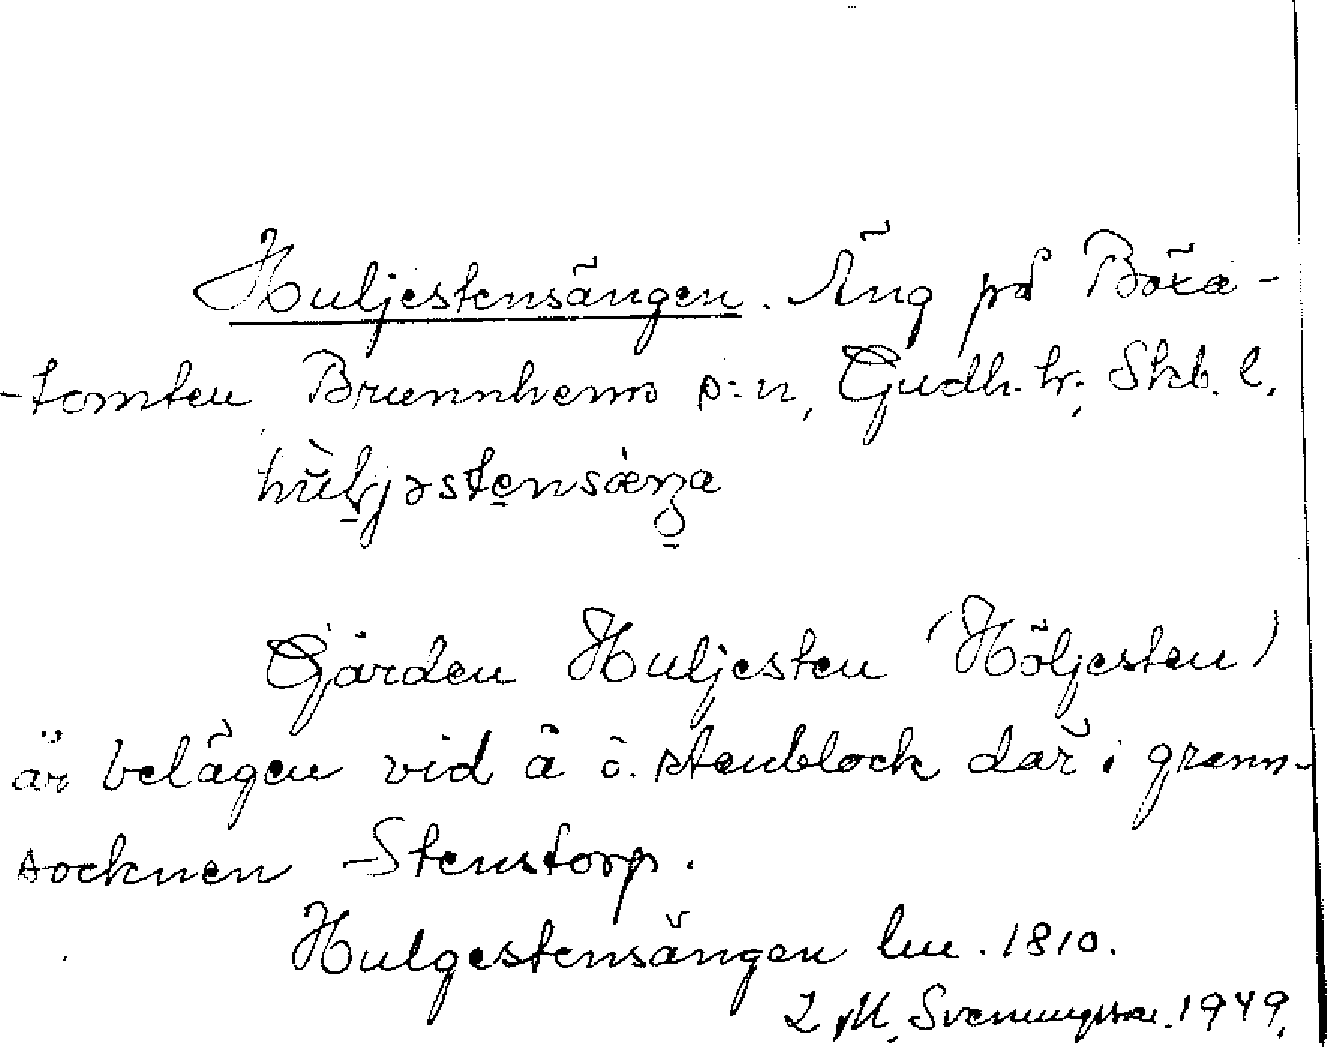 Huljestensängen. Äng på Böxa-
-tomten Brunnhems s:n, Gudh. hr, Skb. l.
Gården Huljesten (Höljesten)
är belägen vid ä ö. stenblock där i grann-
socknen Stenstorp.
Hulgestensängen lm. 1810.
M. Svenungsson. 1949.